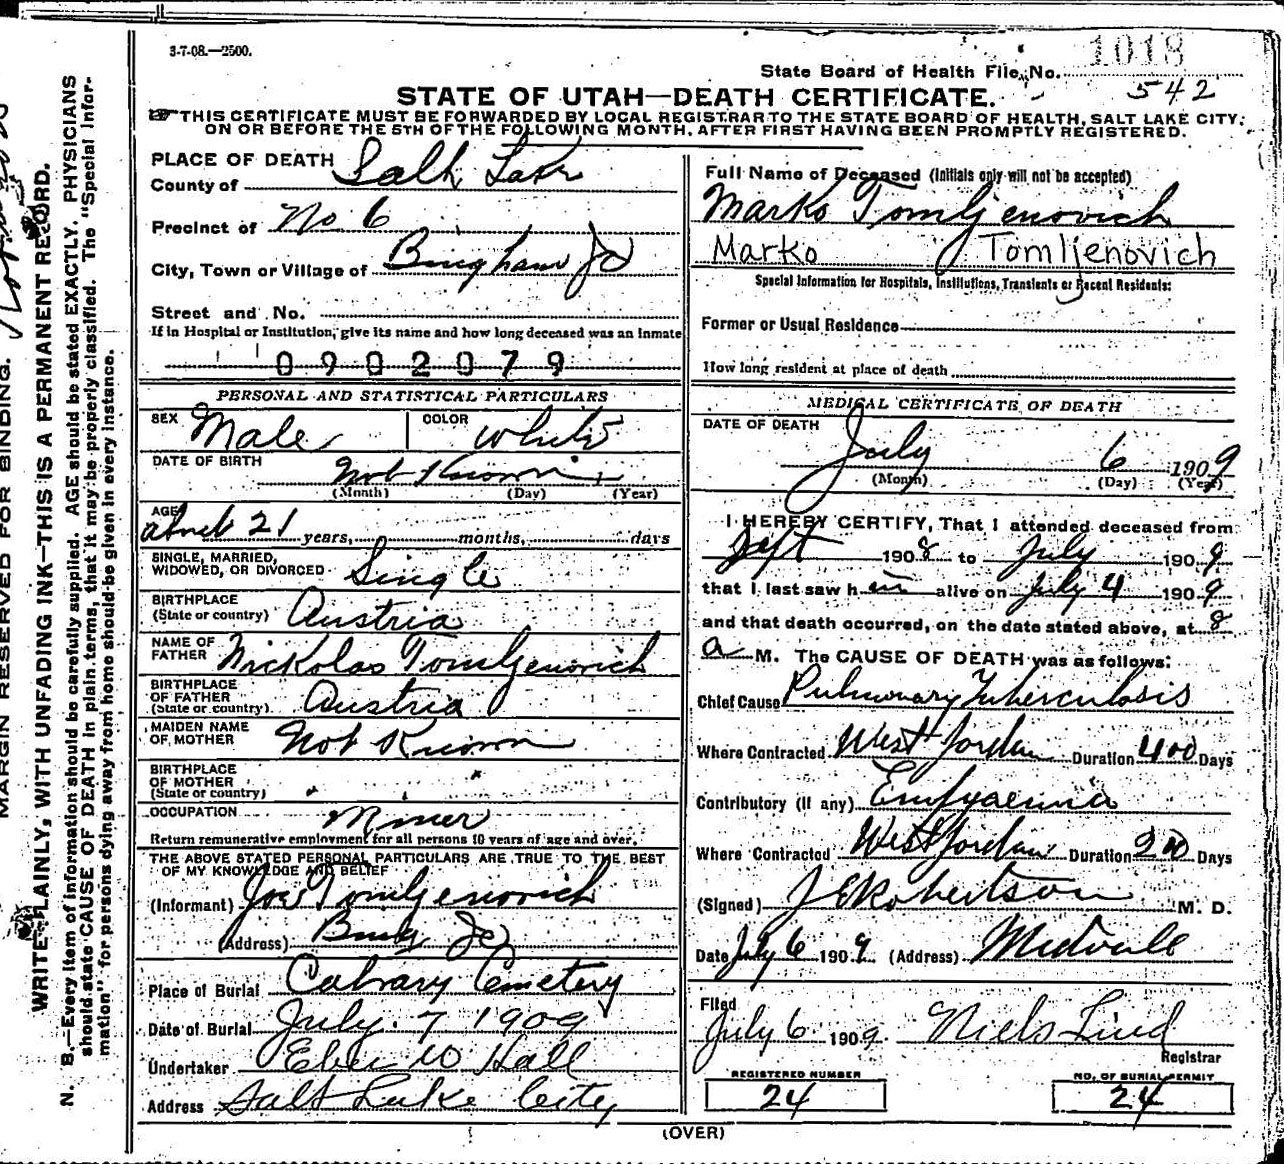 3-7-08.—2500.
1018
State Board of Health File No.
542
STATE OF UTAH—DEATH CERTIFICATE.
THIS CERTIFICATE MUST BE FORWARDED BY LOCAL REGISTRAR TO THE STATE BOARD OF HEALTH, SALT LAKE CITY,
ON OR BEFORE THE 5TH OF THE FOLLOWING MONTH, AFTER FIRST HAVING BEEN PROMPTLY REGISTERED.
PLACE OF DEATH
County of Salt Lake
Precinct of No 6
City, Town or Village of Bingham Jc
Street and No.
If in Hospital or Institution, give its name and how long deceased was an Inmate
0902079
PERSONAL AND STATISTICAL PARTICULARS
SEX Male COLOR White
DATE OF BIRTH Not Known
(Month) (Day) (Year)
AGE about 21 years, months, days
SINGLE, MARRIED,
WIDOWED, OR DIVORCED Single
BIRTHPLACE
(State or country) Austria
NAME OF
FATHER Nickolas Tomljenovich
BIRTHPLACE
OF FATHER
(State or country) Austria
MAIDEN NAME
OF MOTHER Not Known
BIRTHPLACE
OF MOTHER
(State or country)
OCCUPATION Miner
Return remunerative employment for all persons 10 years of age and over.
THE ABOVE STATED PERSONAL PARTICULARS ARE TRUE TO THE BEST
OF MY KNOWLEDGE AND BELIEF
(Informant) Joe Tomljenovich
(Address) Bing Jc
Place of Burial Calvary Cemetery
Date of Burial July 7 1909
Undertaker Eber W Hall
Address Salt Lake City
Full Name of Deceased (Initials only will not be accepted)
Marko Tomljenovich
Marko Tomljenovich
Special Information for Hospitals, Institutions, Transients or Recent Residents:
Former or Usual Residence
How long resident at place of death
MEDICAL CERTIFICATE OF DEATH
DATE OF DEATH
July 6 1909
(Month) (Day) (Year)
I HEREBY CERTIFY, That I attended deceased from
Sept 1908 to July 1909
that I last saw him alive on July 4 1909
and that death occurred, on the date stated above, at 8
a M. The CAUSE OF DEATH was as follows:
Chief Cause Pulmonary Tuberculosis
Where Contracted West Jordan Duration 400 Days
Contributory (if any) Empyaemia
Where Contracted West Jordan Duration 200 Days
(Signed) J E Robertson M. D.
Date July 6 1909 (Address) Midvale
Filed
July 6 1909 Niels Lind
Registrar
REGISTERED NUMBER
24
NO. OF BURIAL PERMIT
24
(OVER)
MARGIN RESERVED FOR BINDING.
WRITE PLAINLY, WITH UNFADING INK—THIS IS A PERMANENT RECORD.
N. B.—Every item of information should be carefully supplied. AGE should be stated EXACTLY. PHYSICIANS
should state CAUSE OF DEATH in plain terms, that it may be properly classified. The "Special Infor-
mation" for persons dying away from home should be given in every instance.